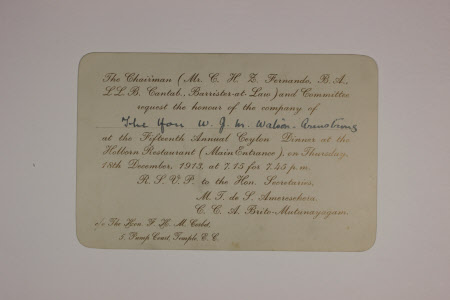 The Chairman (Mr. C. H. Z. Fernando, B. A.,
L.L.B. Cantab., Barrister-at Law) and Committee
request the honour of the company of
The Hon W. J. M. Watson-Armstrong
at the Fifteenth Annual Ceylon Dinner at the
Holborn Restaurant (Main Entrance), on Thursday,
18th December, 1913, at 7.15 for 7.45 p.m.
R. S. V. P. to the Hon. Secretaries,
M. T. de S. Ameresekera.
C. C. A. Brito-Mutunayagam.
c/o The Hon. F. H. M.
5 Pump Court, Temple, E. C.